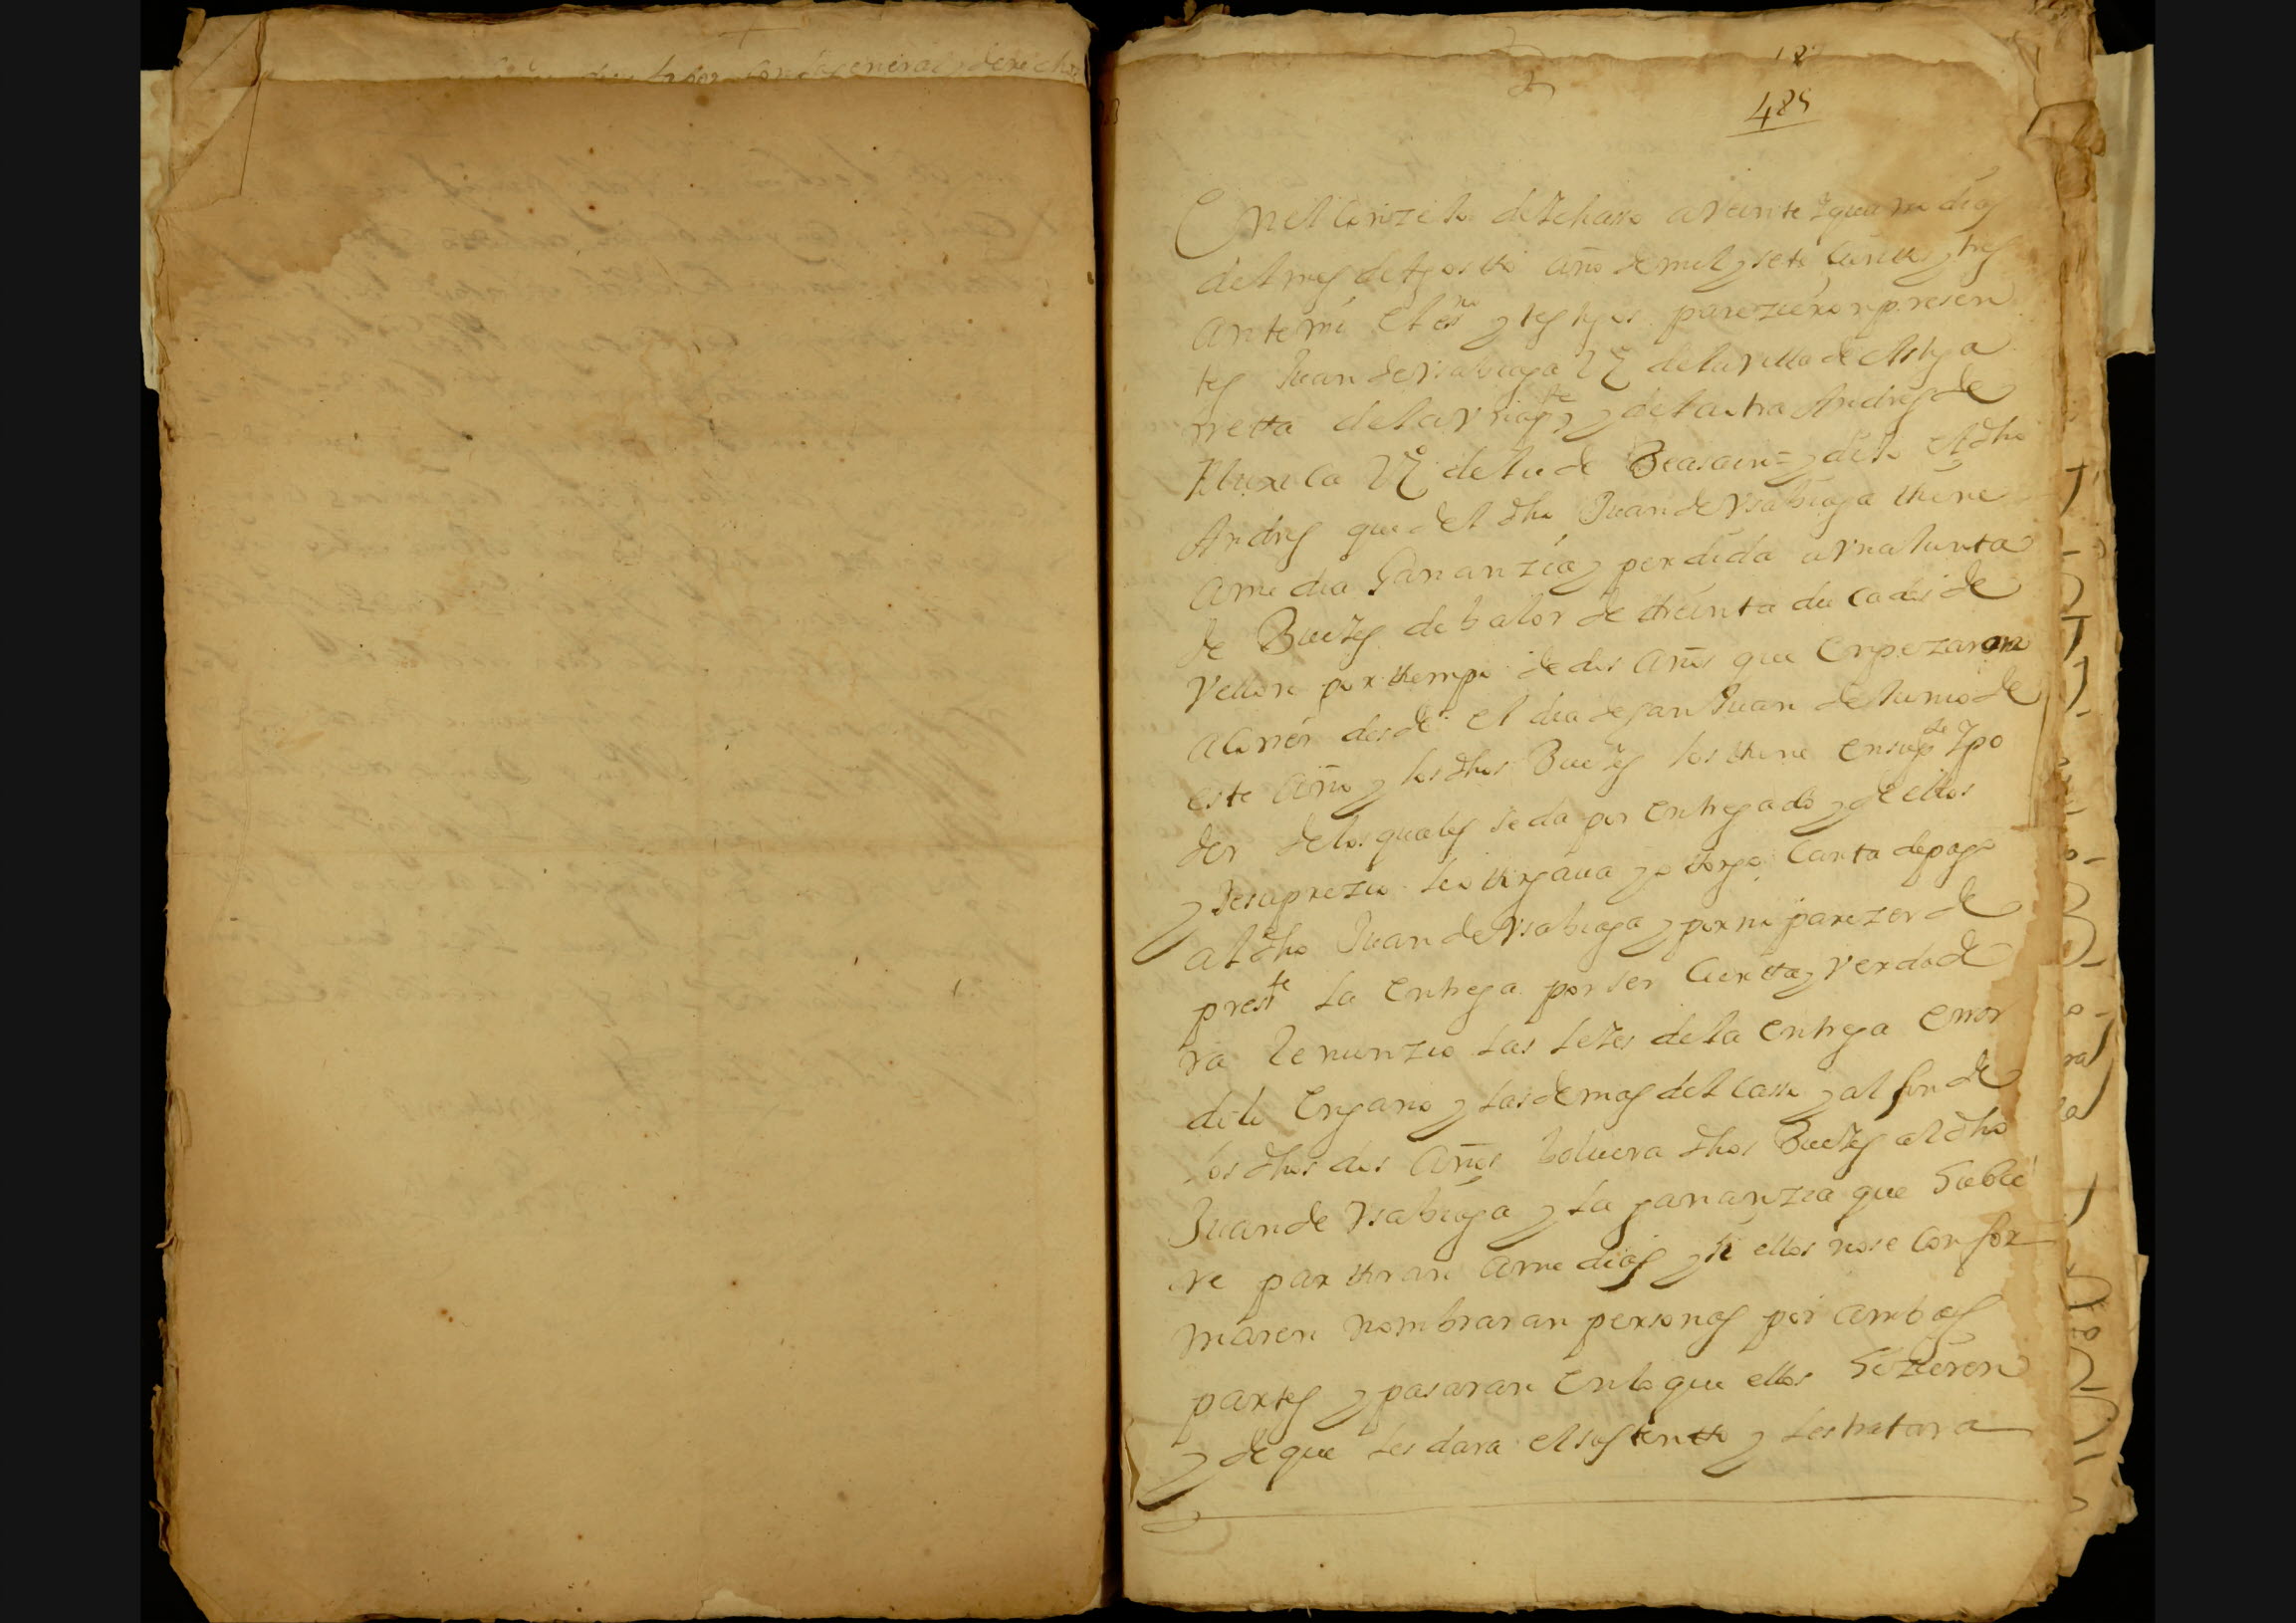 485
En el Conzejo de Ychaso a veinte y quatro dias
del mes de Agostto año de mil y sete cienttos y tres
ante mi el esno y testigos parezieron presen
tes Juan de Vsabiaga Vº de la villa de Astiga
rretta de la vna pte y de la otra Andres de
Vº de la de Beasain = y dijo el dho
Andres que del dho Juan de Vsabiaga thiene
a media Gananzia y perdida a vna Junta
de Bueyes de balor de treinta ducados de
Vellon por tiempo de dos años que enpezaron
a correr desde el dia de san Juan de Junio de
este año y los dhos Bueyes los thiene en su pte y po
der de los quales se da por entregado y de ellos
y se otorgaua y otorgo Carta de pago
al dho Juan de Vsabiaga y por no parezer de
presте la entrega por ser Cierta y verdade
ra Renunzio las leyes de la entrega error
de lo Engaño y las demas del Casso y al fin de
los dhos dos años boluera dhos Bueyes al dho
Juan de Vsabiaga y la gananzia que hubie
re partiran a medias y si ellos no se confor
maren nombraran personas por ambas
partes y pasaran en lo que ellos hizieren
y de que les dara el sustentto y les tratara